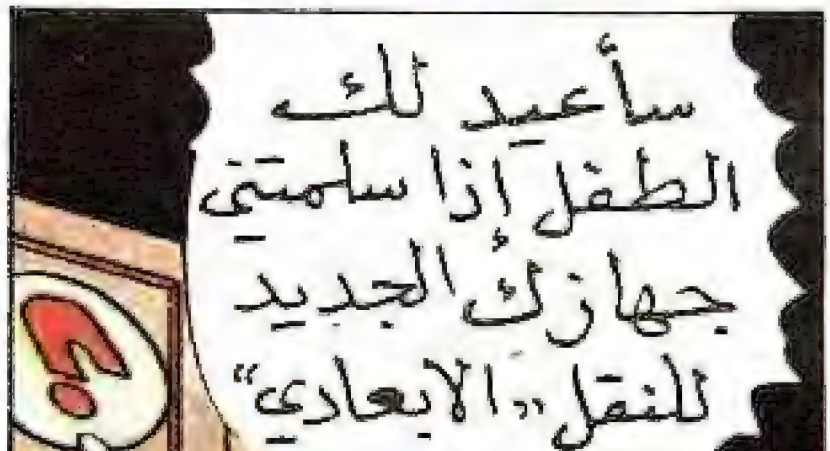 سأعيد لك
الطفل إذا سلمتني
جهازك الجديد
للنقل "الابعادي"
؟